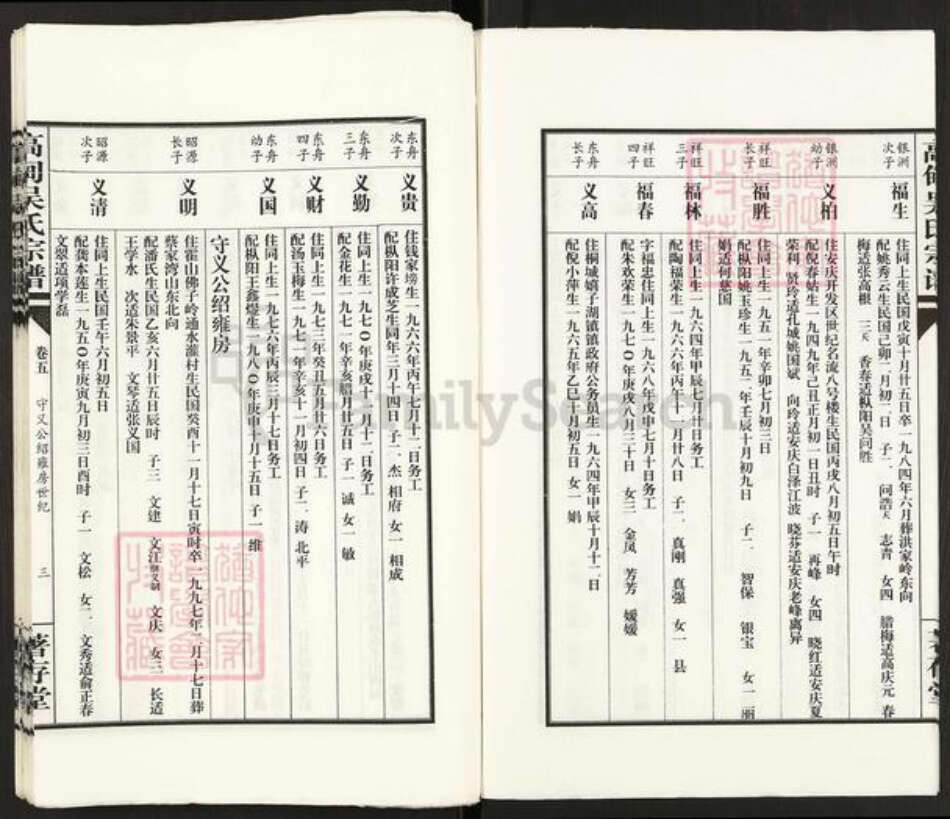 银洲次子
福生
住同上生民国戊寅十月廿五日卒一九八四年六月葬洪家岭东向
配姚秀云生民国己卯二月初二日 子二 问浩 志青 女四 腊梅适高庆元 春
梅适张高根 三 香春适枞阳吴问胜
银洲幼子
义柏
住安庆开发区世纪名流八号楼生民国丙戌八月初五日午时
配倪春姑生一九四九年己丑正月初一日丑时 子一 再峰 女四 晓红适安庆夏
荣利 贤玲适孔城姚国斌 向玲适安庆白泽江波 晓芬适安庆老峰离异
祥旺长子
福胜
住同上生一九五一年辛卯七月初三日
配枞阳姚玉珍生一九五二年壬辰十月初九日 子二 智保 银宝 女一 丽
娟适何慈国
祥旺三子
福林
住同上生一九六四年甲辰七月廿日务工
配陶福荣生一九六六年丙午十一月廿八日 子二 真刚 真强 女一 县
祥旺四子
福春
字福忠住同上生一九六八年戊申七月十日务工
配朱欢荣生一九七〇年庚戌八月三十日 女三 金凤 芳芳 媛媛
东舟长子
义高
住桐城嬉子湖镇政府公务员生一九六四年甲辰十月十二日
配倪小萍生一九六五年乙巳八月初五日 女一 娟
东舟次子
义贵
住钱家塝生一九六六年丙午七月十二日务工
配枞阳许成芝生同年三月十四日 子二 杰 相府 女一 相成
东舟三子
义勤
住同上生一九七〇年庚戌十一月十一日务工
配金花生一九七一年辛亥腊月廿五日 子一 诚 女一 敏
东舟四子
义财
住同上生一九七三年癸丑五月廿六日务工
配汤玉梅生一九七一年辛亥十一月初四日 子二 涛 北平
东舟幼子
义国
住同上生一九七六年丙辰三月十七日务工
配枞阳王鑫煜生一九八〇年庚申十月十五日 子一 维
守义公绍雍房
昭源长子
义明
住霍山佛子岭通水潅村生民国癸酉十一月十七日寅时卒一九九七年二月十七日葬
蔡家湾山东北向
配潘氏生民国乙亥六月廿五日辰时 子三 文建 文江 文庆 女三 长适
王学水 次适朱景平 文琴适张义国
昭源次子
义清
住同上生民国壬午六月初五日
配龚本莲生一九五〇年庚寅九月初三日酉时 子一 文松 女二 文秀适俞正春
文翠适项学磊
吴氏宗谱
卷五
守义公绍雍房世纪
三
著存堂
FamilySearch